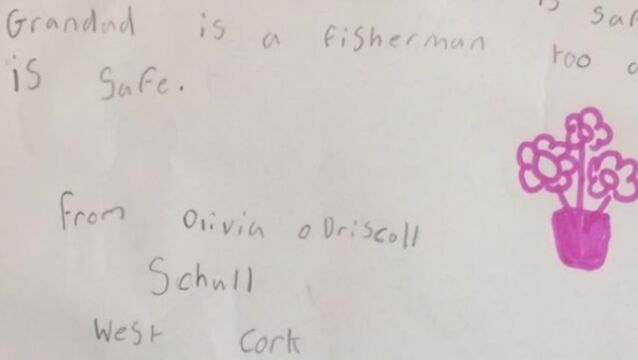 is
Grandad is a fisherman too
is Safe.
From Olivia o Driscoll
Schull
West Cork